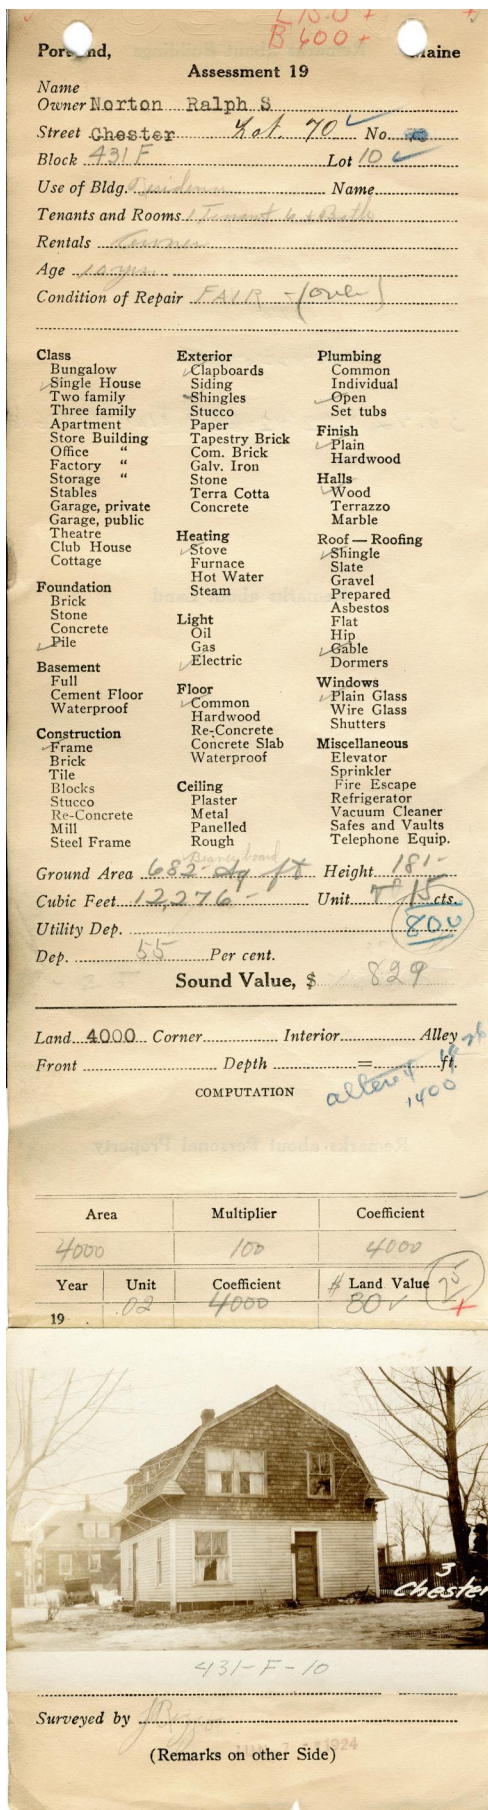 L 150 +
B 600 +
Portland, Maine
Assessment 19
Name
Owner Norton Ralph S
Street Chester Lot. 70 No.
Block 431 F Lot 10
Use of Bldg. Residence Name
Tenants and Rooms 1 Tenant 6 & Bath
Rentals Owner
Age 10 yrs
Condition of Repair FAIR - (over)
Class
Bungalow
Single House
Two family
Three family
Apartment
Store Building
Office "
Factory "
Storage "
Stables
Garage, private
Garage, public
Theatre
Club House
Cottage
Foundation
Brick
Stone
Concrete
Pile
Basement
Full
Cement Floor
Waterproof
Construction
Frame
Brick
Tile
Blocks
Stucco
Re-Concrete
Mill
Steel Frame
Exterior
Clapboards
Siding
Shingles
Stucco
Paper
Tapestry Brick
Com. Brick
Galv. Iron
Stone
Terra Cotta
Concrete
Heating
Stove
Furnace
Hot Water
Steam
Light
Oil
Gas
Electric
Floor
Common
Hardwood
Re-Concrete
Concrete Slab
Waterproof
Ceiling
Plaster
Metal
Panelled
Rough
Beaver board
Plumbing
Common
Individual
Open
Set tubs
Finish
Plain
Hardwood
Halls
Wood
Terrazzo
Marble
Roof — Roofing
Shingle
Slate
Gravel
Prepared
Asbestos
Flat
Hip
Gable
Dormers
Windows
Plain Glass
Wire Glass
Shutters
Miscellaneous
Elevator
Sprinkler
Fire Escape
Refrigerator
Vacuum Cleaner
Safes and Vaults
Telephone Equip.
Ground Area 682 sq ft Height 18'-
Cubic Feet 12,276 - Unit 15 cts.
Utility Dep. 800
Dep. 55 Per cent.
Sound Value, $ 829
Land 4000 Corner Interior Alley
Front Depth = ft.
altered
1400
COMPUTATION
Area Multiplier Coefficient
4000 100 4000
Year Unit Coefficient $ Land Value 75
19 .02 4000 80 +
3
Chester
431-F-10
Surveyed by
1924
(Remarks on other Side)